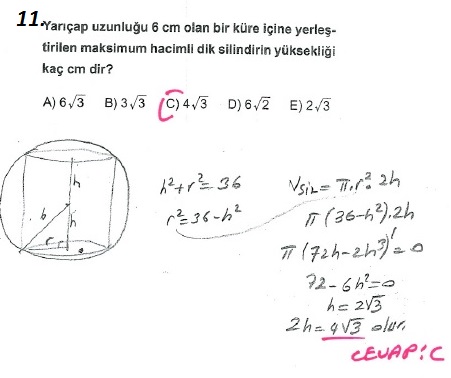 11. Yarıçap uzunluğu 6 cm olan bir küre içine yerleş-
tirilen maksimum hacimli dik silindirin yüksekliği
kaç cm dir?
A) 6√3 B) 3√3 C) 4√3 D) 6√2 E) 2√3
h
6
h
r
h²+r²=36
r²=36-h²
Vsil=π.r².2h
π(36-h²).2h
π(72h-2h³)'=0
72-6h²=0
h=2√3
2h=4√3 olur.
CEVAP:C